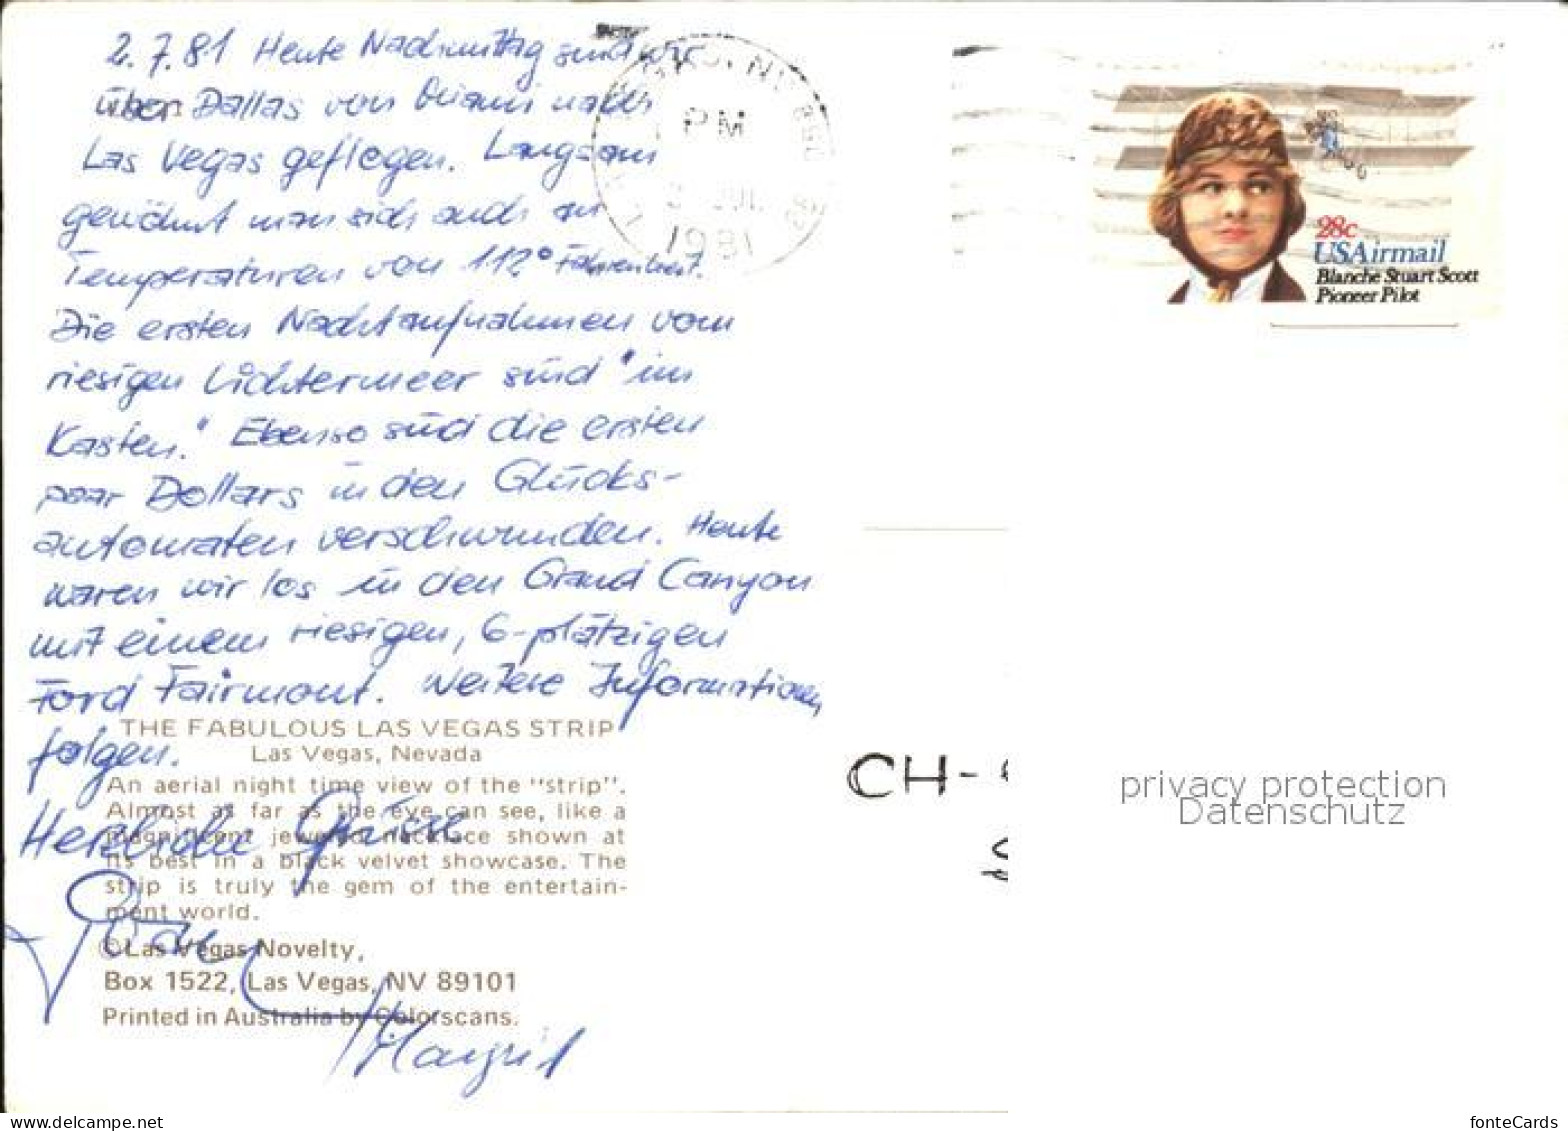 2.7.81 Heute Nachmittag sind wir
über Dallas von Miami nach
Las Vegas geflogen. Langsam
gewöhnt man sich auch an
Temperaturen von 112° Fahrenheit.
Die ersten Nachtaufnahmen vom
riesigen Lichtermeer sind "im
Kasten." Ebenso sind die ersten
paar Dollars in den Glücks-
automaten verschwunden. Heute
waren wir los in den Grand Canyon
mit einem riesigen, 6-plätzigen
Ford Fairmont. Weitere Informationen
folgen.
Herzliche Grüsse
THE FABULOUS LAS VEGAS STRIP
Las Vegas, Nevada
An aerial night time view of the "strip".
Almost as far as the eye can see, like a
magnificent jeweled necklace shown at
its best in a black velvet showcase. The
strip is truly the gem of the entertain-
ment world.
©Las Vegas Novelty,
Box 1522, Las Vegas, NV 89101
Printed in Australia by Colorscans.
PM
JUL
1981
28c
USAirmail
Blanche Stuart Scott
Pioneer Pilot
CH-
privacy protection
Datenschutz
www.delcampe.net
fonteCards